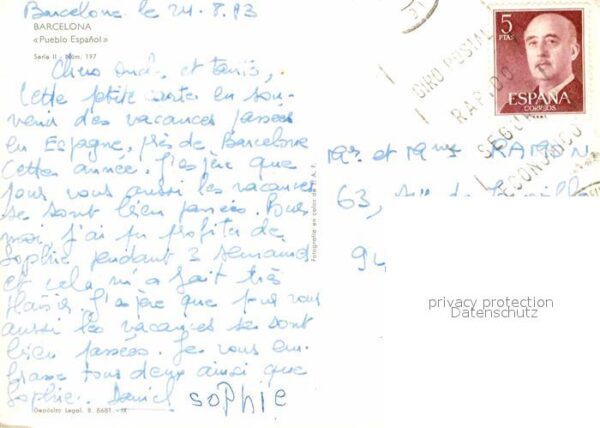 Barcelona le 24.8.83
BARCELONA
«Pueblo Español»
Serie II - Núm. 197
Chers oncle et tatis,
Cette petite carte en sou-
venir des vacances passées
en Espagne, près de Barcelone
Cette année. J'espère que
pour vous aussi les vacances
se sont bien passées. Pour
moi, j'ai pu profiter de
Sophie pendant 3 semaines
et cela m'a fait très
plaisir. J'espère que pour vous
aussi les vacances se sont
bien passées. Je vous em-
brasse tous deux ainsi que
Sophie. Daniel SOPHIE
Depósito Legal. B. 6681 - IX
Fotografía en color de F.A.F.
5
PTAS
ESPAÑA
CORREOS
GIRO POSTAL
RAPIDO
SEGURO
ECONOMICO
Mr et Mme RAMON
63,
94
privacy protection
Datenschutz